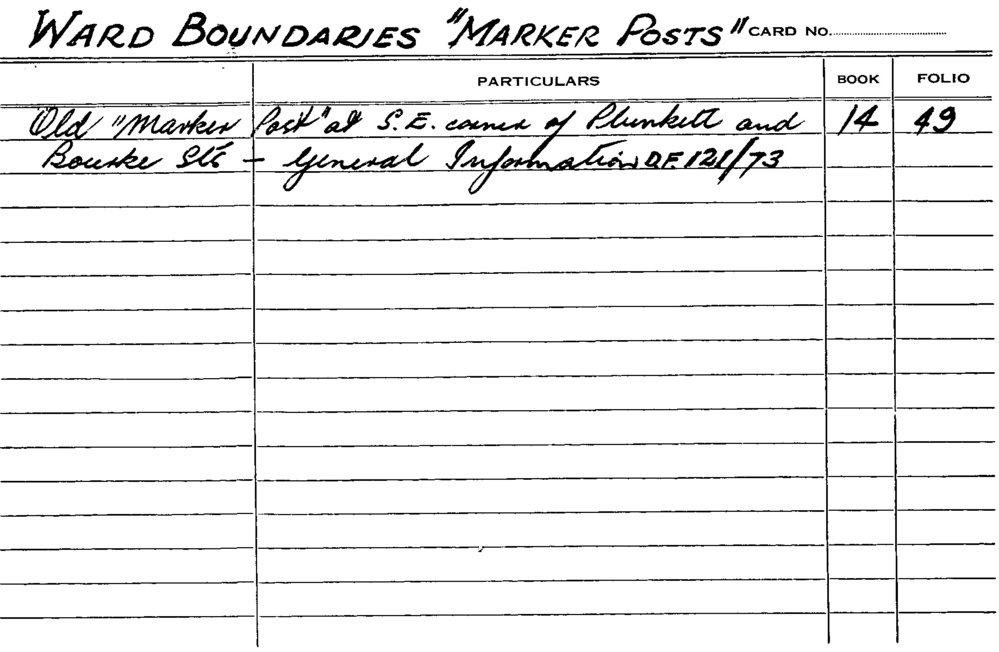 WARD BOUNDARIES "MARKER POSTS" CARD No.
PARTICULARS BOOK FOLIO
Old "Marker Post" at S.E. corner of Plunkett and 14 49
Bourke Sts – General Information D.F. 121/73